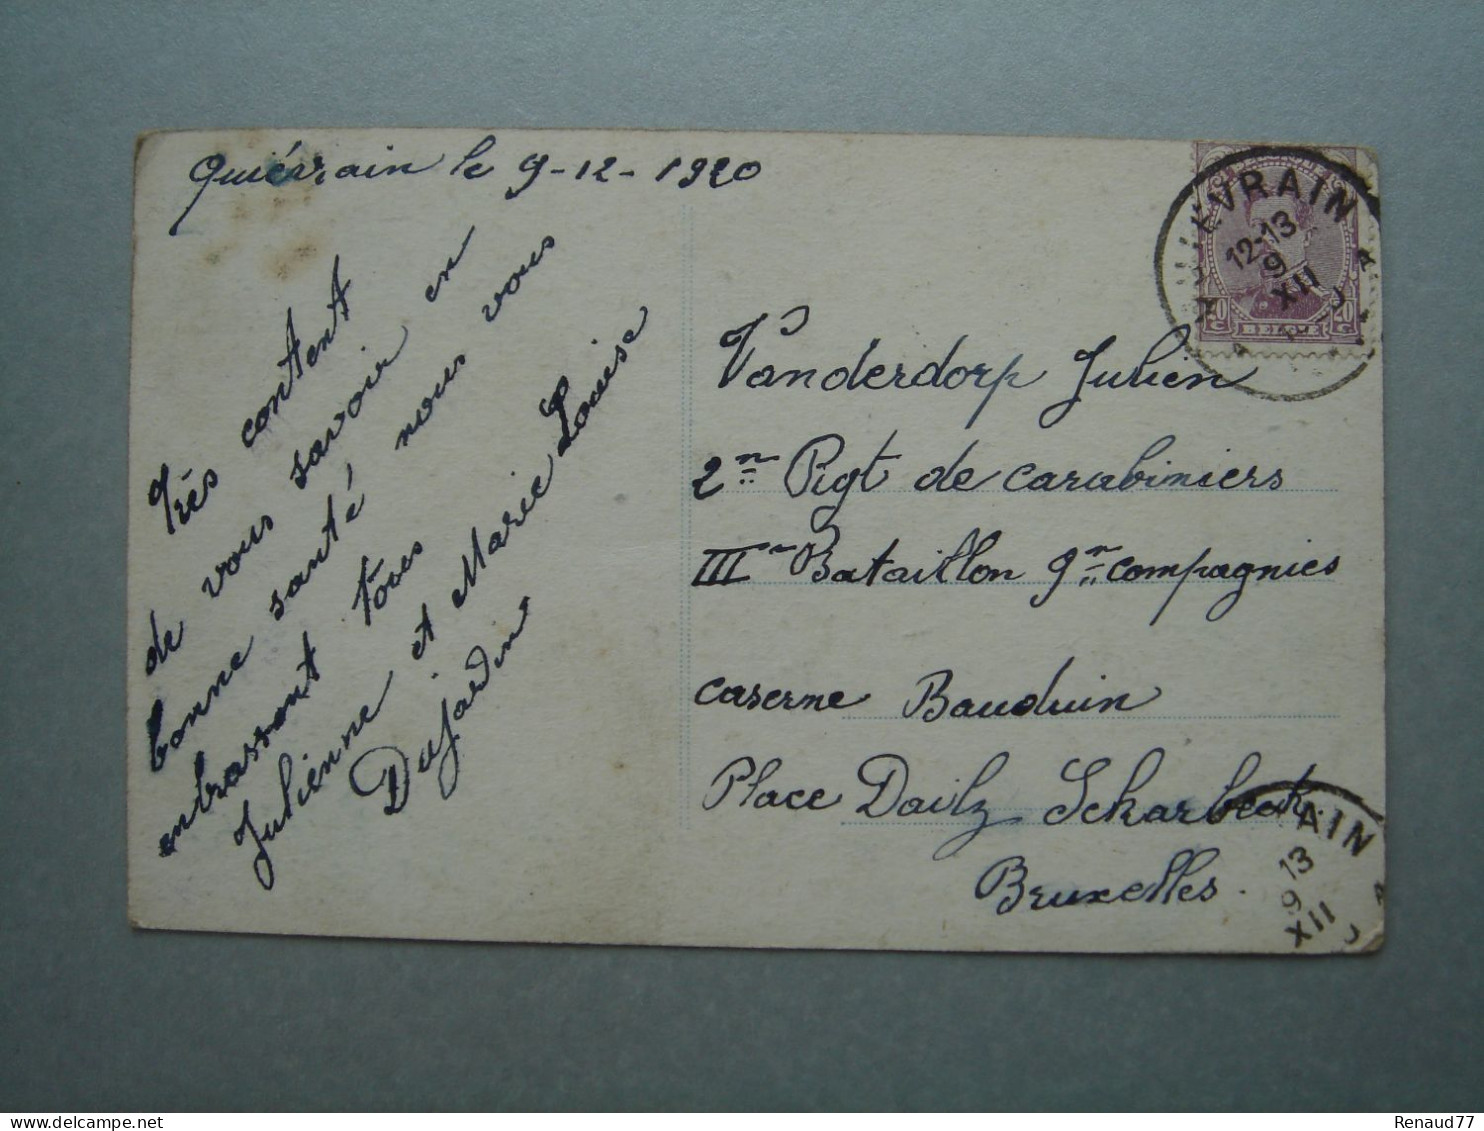 Quiévrain le 9-12-1920
Très content
de vous savoir en
bonne santé nous vous
embrassont tous
Julienne et Marie Louise
Dujardin
Vanderdorp Julien
2n Rigt de carabiniers
III Bataillon 9n compagnies
caserne Bauduin
Place Dailz Scharbeek.
Bruxelles.
QUIÉVRAIN
12-13
9
XII
20 BELGIË 20
RAIN
13
9
XII
Renaud77